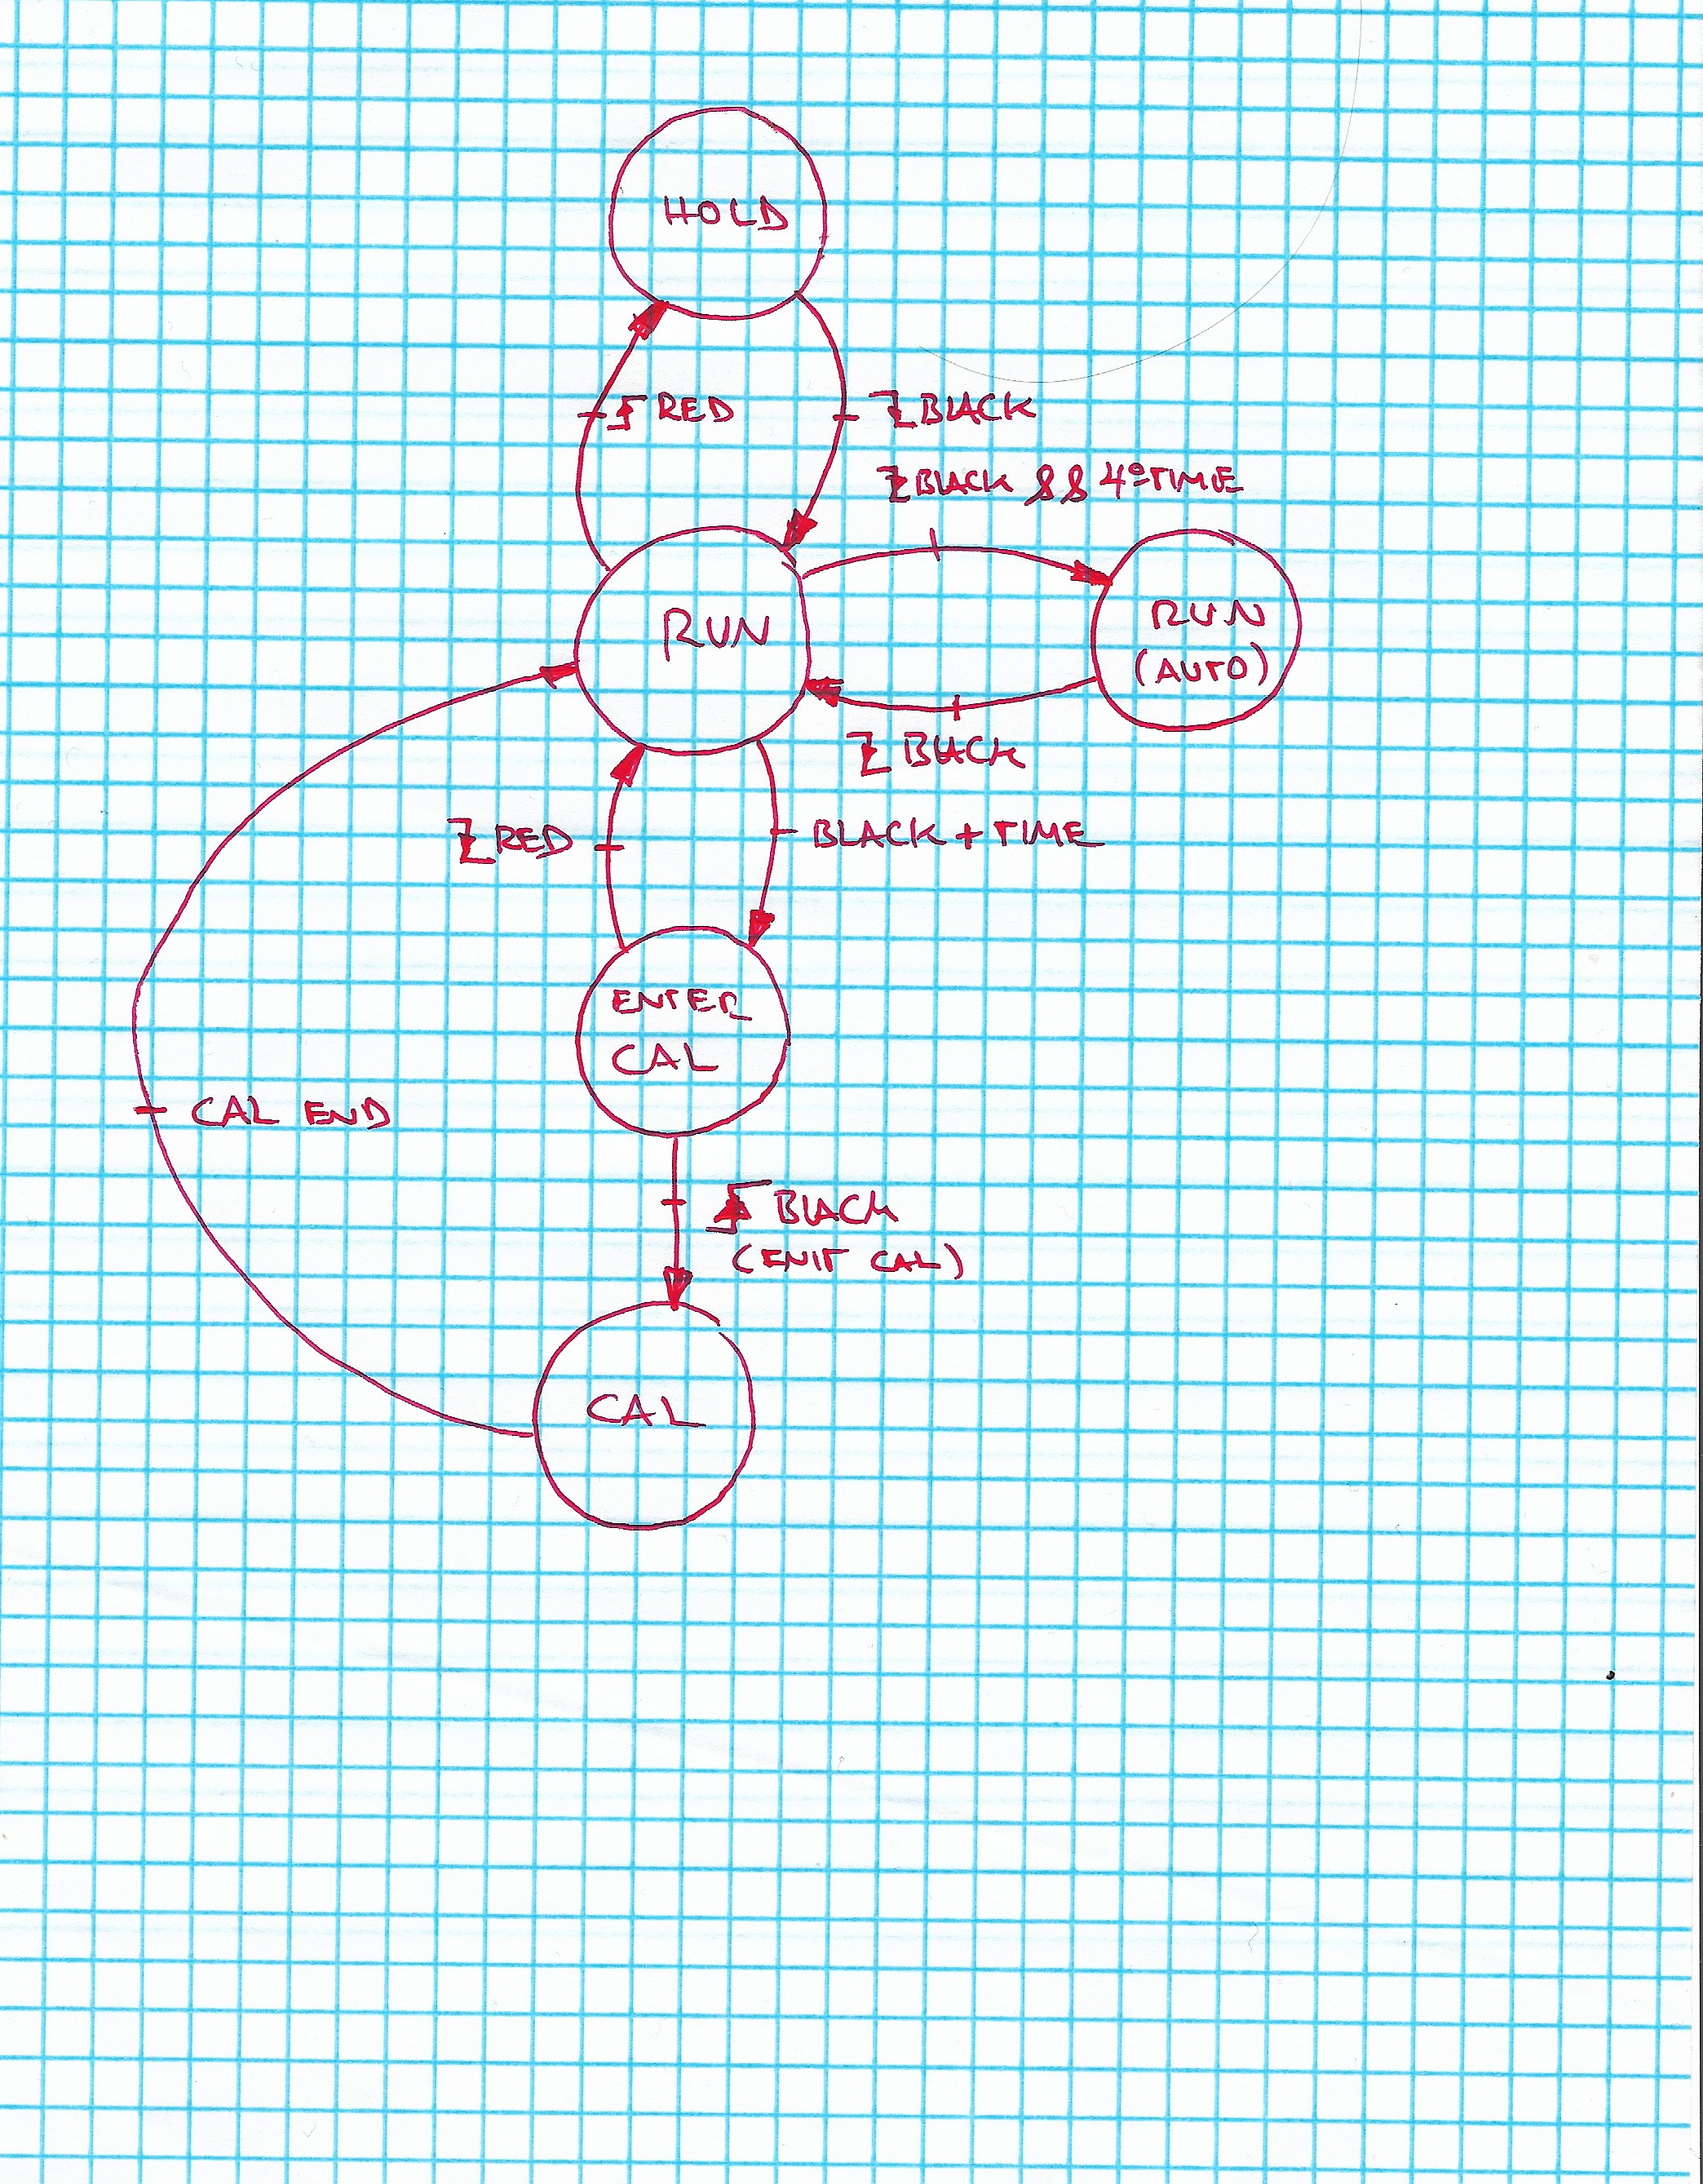 HOLD
RED
BLACK
BLACK && 4º TIME
RUN
RUN
(AUTO)
BLACK
RED
BLACK + TIME
ENTER
CAL
CAL END
BLACK
CAL)
CAL